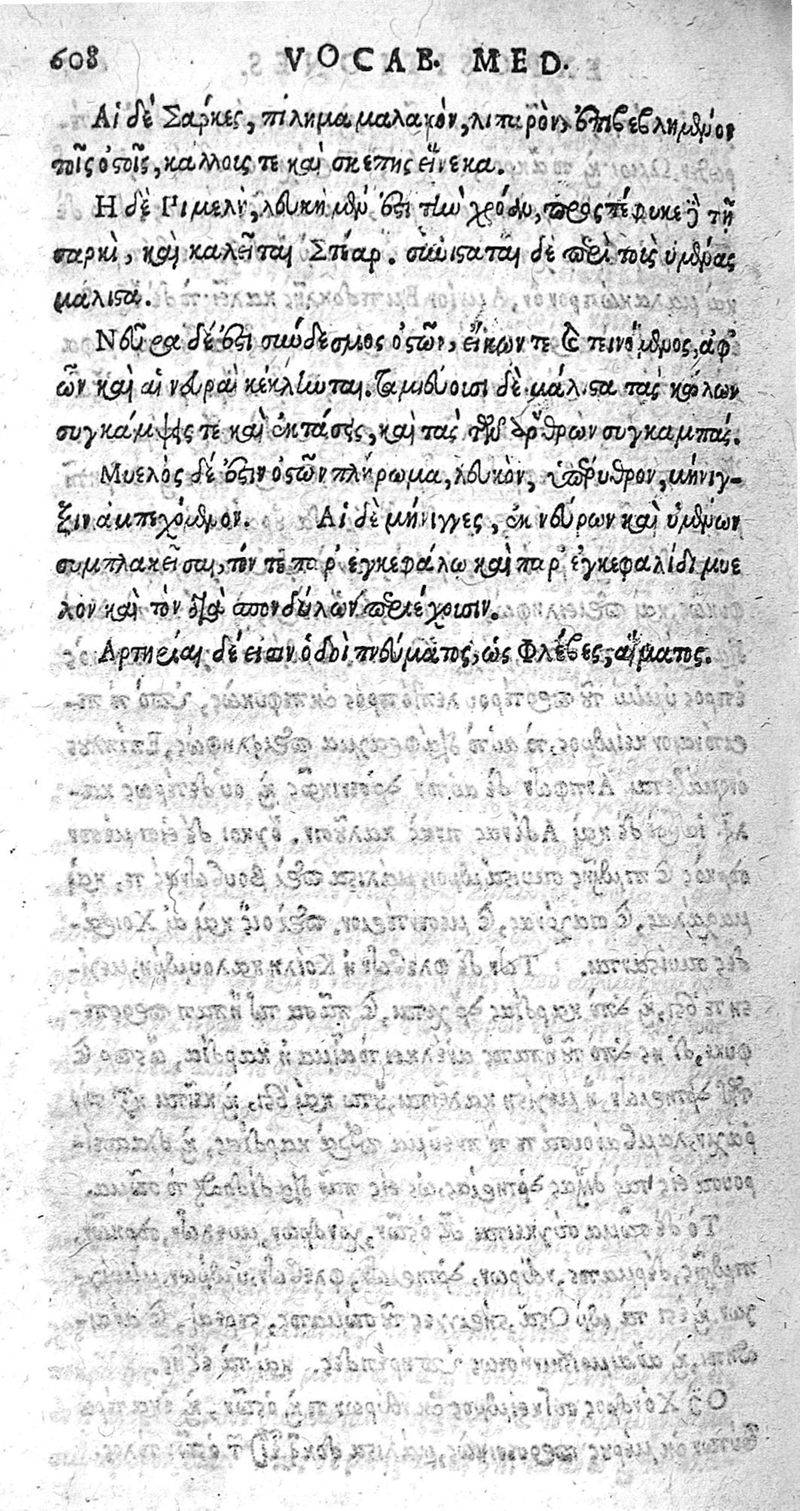 608 VOCAB. MED.
Αἱ δὲ Σάρκες, πίλημα μαλακὸν, λιπαρὸν, ἐπιβεβλημένον
τοῖς ὀστοῖς, κάλλοις τε καὶ σκέπης εἵνεκα.
Ἡ δὲ Πιμελὴ, λευκὴ μέν ἐστι τὴν χρόαν, προσπέφυκε δὲ τῇ
σαρκὶ, καὶ καλεῖται Στέαρ. συνίσταται δὲ περὶ τοὺς ὑμένας
μάλιστα.
Νεῦρα δέ ἐστι σύνδεσμος ὀστῶν, εἴκων τε καὶ τεινόμενος, ἀφ'
ὧν καὶ αἱ νευραὶ κέκληνται. ταμιεύουσι δὲ μάλιστα τὰς κώλων
συγκάμψεις τε καὶ ἐκτάσεις, καὶ τὰς τῶν ἄρθρων συγκαμπάς.
Μυελὸς δέ ἐστιν ὀστῶν πλήρωμα, λευκὸν, ὑπέρυθρον, μήνιγ-
ξιν ἀμπεχόμενον. Αἱ δὲ μήνιγγες, ἐκ νεύρων καὶ ὑμένων
συμπλακεῖσαι, τόν τε παρ' ἐγκεφάλῳ καὶ παρ' ἐγκεφαλίδι μυε
λὸν καὶ τὸν διὰ σπονδύλων περιέχουσιν.
Ἀρτηρίαι δέ εἰσιν ὁδοὶ πνεύματος, ὡς Φλέβες, αἵματος.